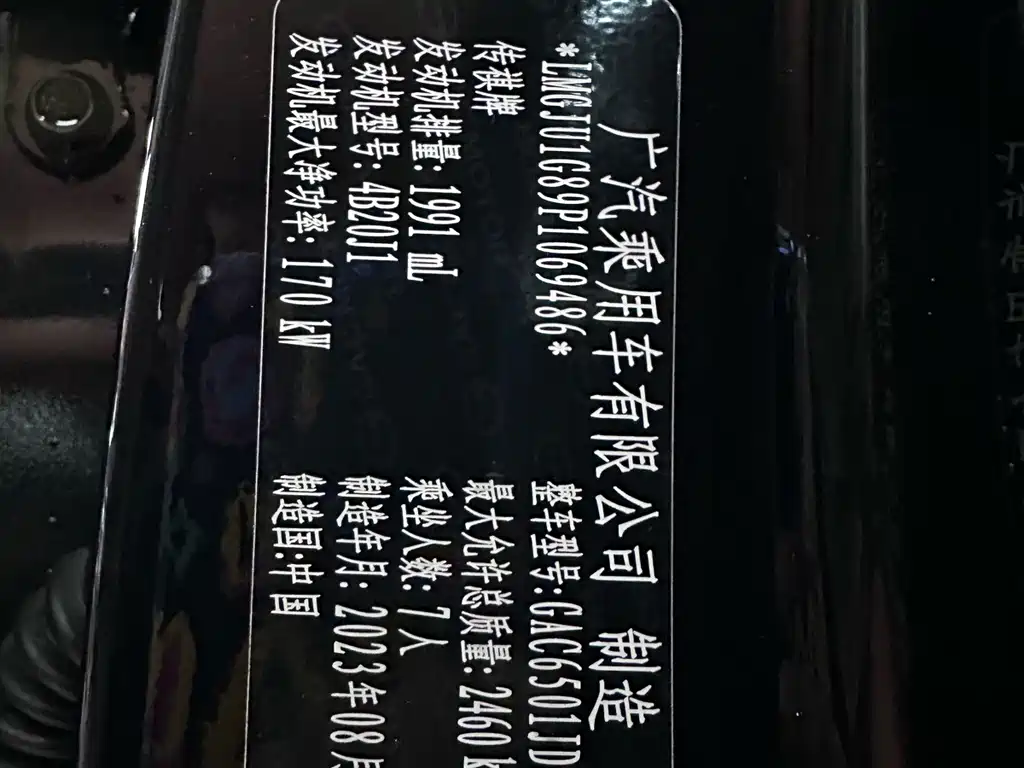 广汽乘用车有限公司 制造
*LMGJU1G89P1069486* 整车型号:GAC6501JD
传祺牌 最大允许总质量:2460 k
发动机排量:1991 mL 乘坐人数:7人
发动机型号:4B20J1 制造年月:2023年08月
发动机最大净功率:170 kW 制造国:中国